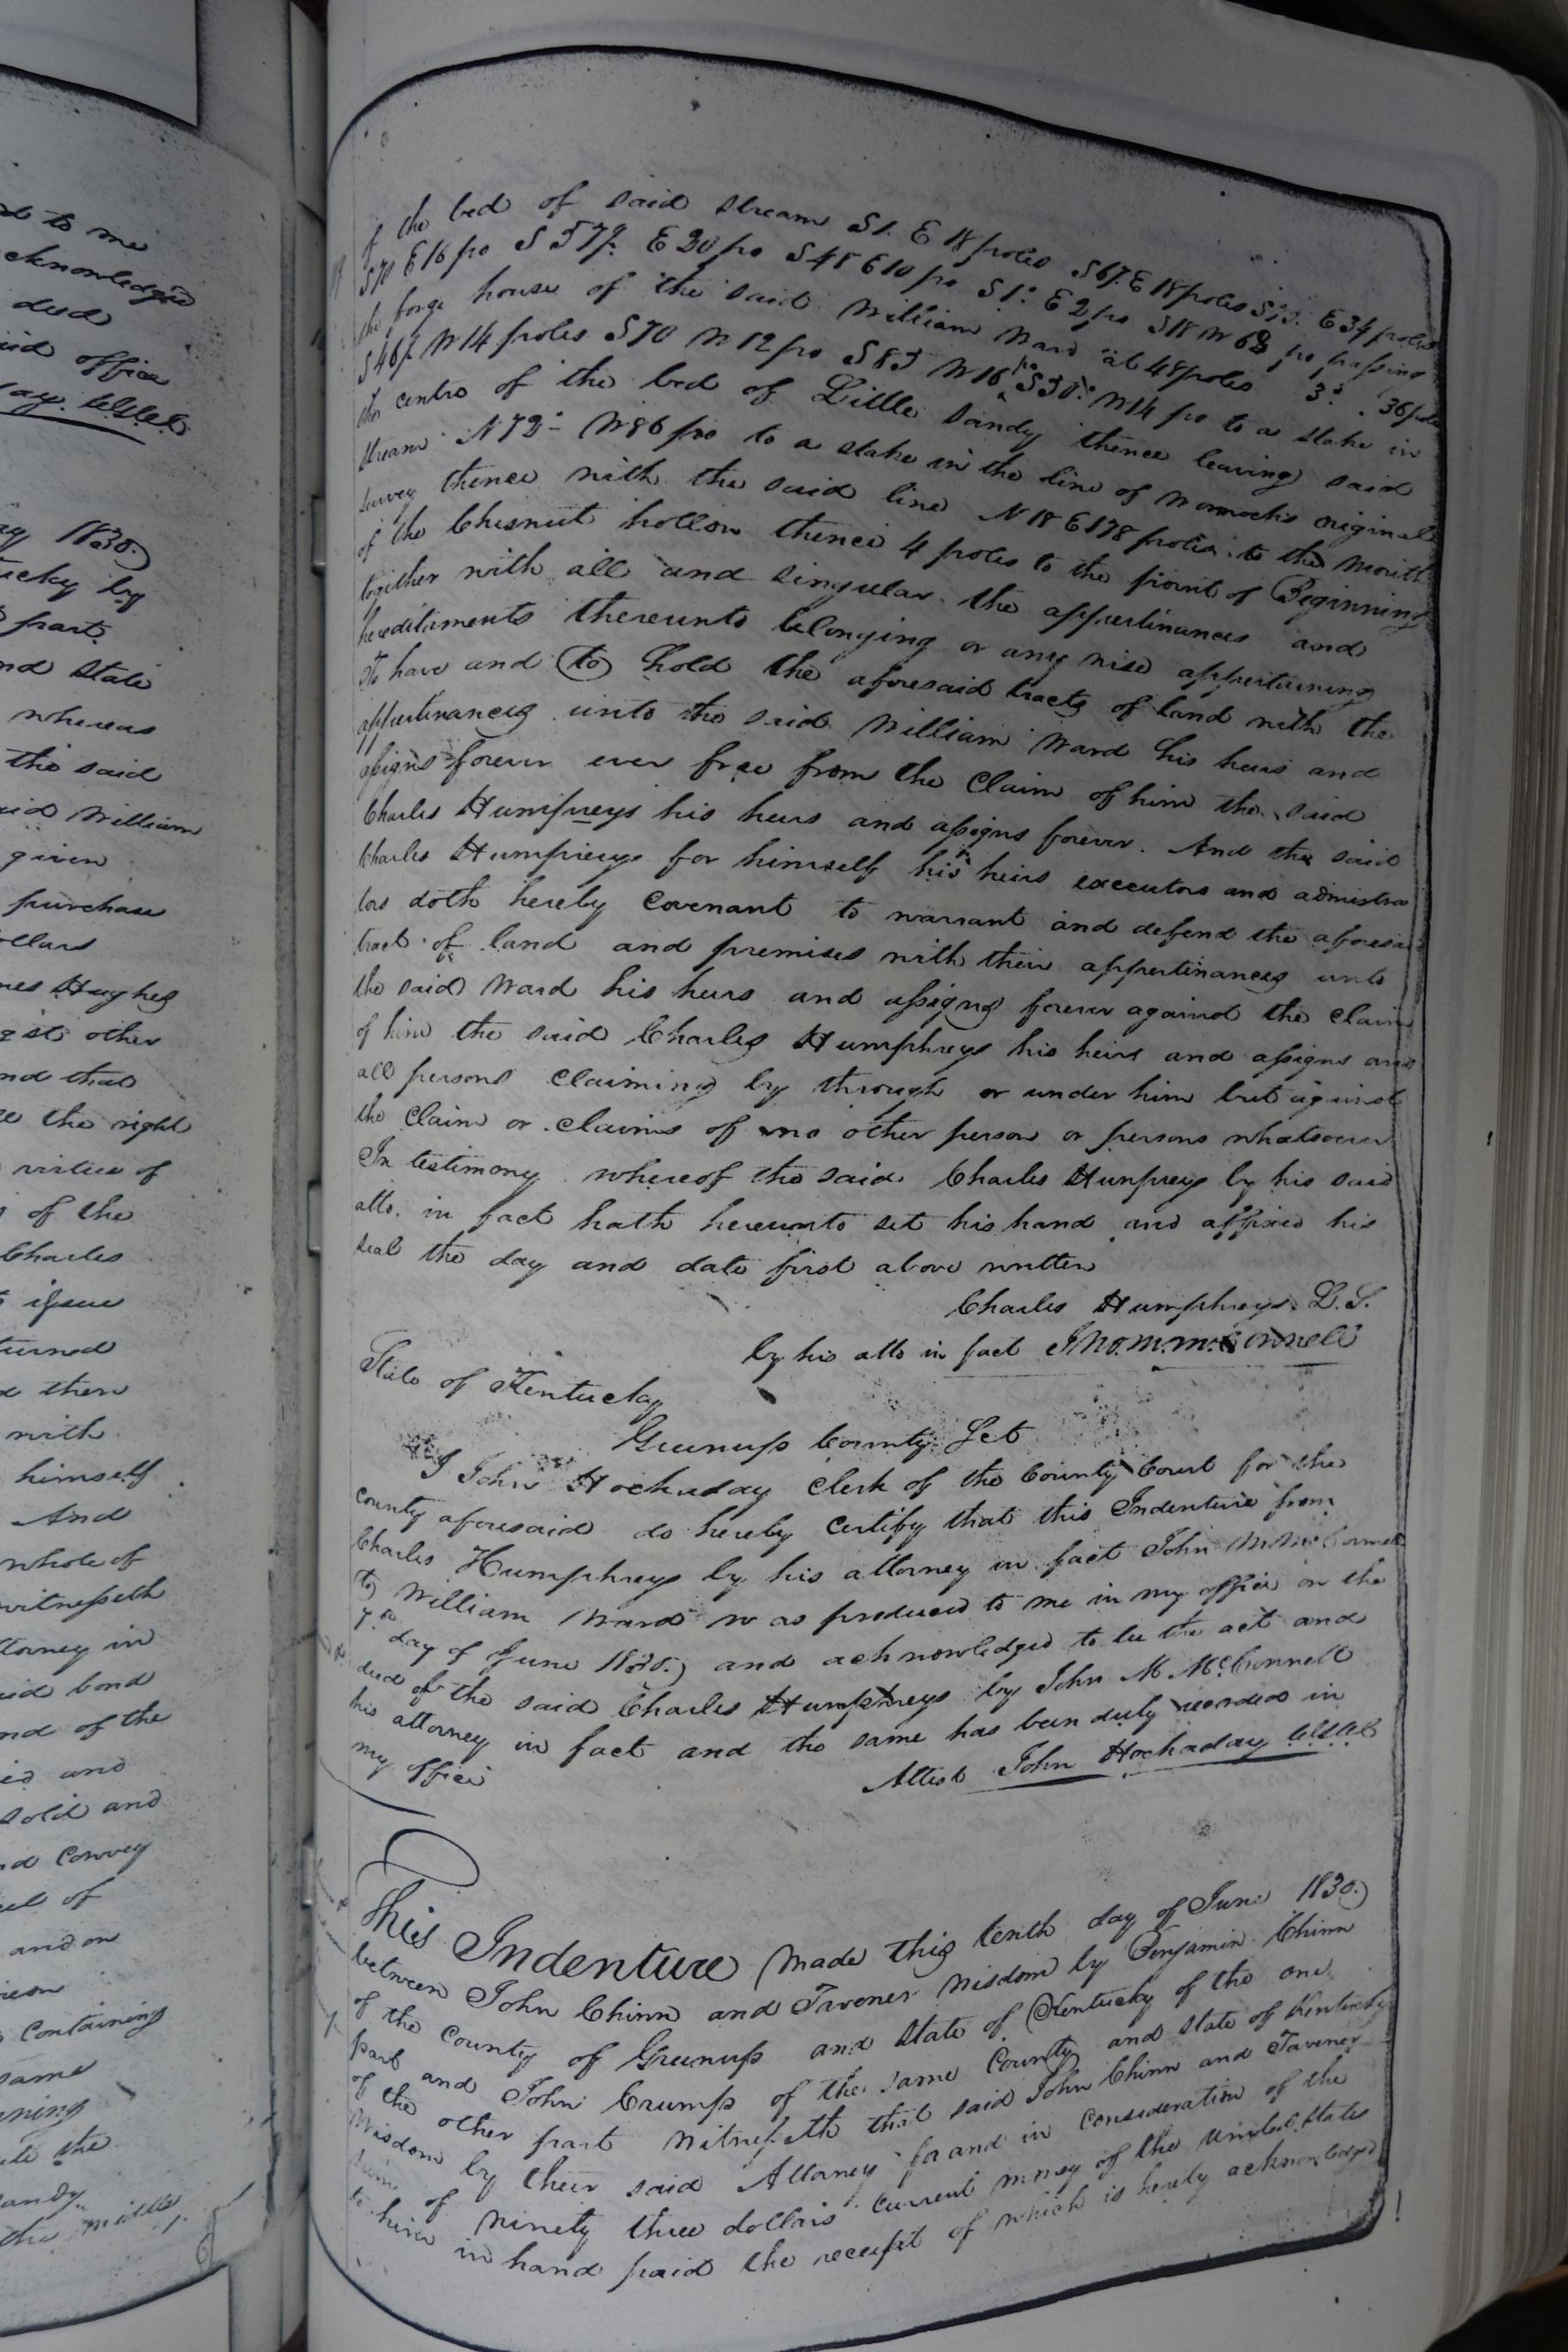 d to me
acknowledged
deed
said office
ay. Clk
ay 1830
tucky by
part
nd State
whereas
the said
said William
given
purchase
ollars
mes Hughes
other
nd that
the right
virtue of
of the
Charles
issue
turned
then
with
himself
And
whole of
witnesseth
ttorney in
aid bond
nd of the
ed and
sold and
nd Convey
of
and on
containing
same
ning
the
andy
the middle
of the bed of said stream S1. E 18 poles E 18 poles E 34 poles
E 16 po E 20 po S 48 E 10 po S1° E 2 po S18 W po passing
the forge house of the said William Ward at 48 poles 36 poles
W 14 poles S 70 W 12 po W 16 po W 14 po to a stake in
the centre of the bed of Little Sandy thence leaving said
stream N 72° W 86 po to a stake in the line of original
survey thence with the said line N 18 E 178 poles to the Mouth
of the Chesnut hollow thence 4 poles to the point of Beginning
together with all and singular the appertinances and
hereditaments thereunto belonging or any wise appertaining
To have and to hold the aforesaid tracts of land with the
appertinances unto the said William Ward his heirs and
assigns forever ever free from the Claim of him the said
Charles Humpreys his heirs and assigns forever. And the said
Charles Humpreys for himself his heirs executors and admistra
tors doth hereby Covenant to warrant and defend the aforesaid
tract of land and premises with their appertinances unto
the said Ward his heirs and assigns forever against the Claim
of him the said Charles Humphreys his heirs and assigns and
all persons claiming by through or under him but against
the Claim or claims of no other person or persons whatsoever
In testimony whereof the said Charles Hunpreys by his said
atto. in fact hath hereunto set his hand and affixed his
seal the day and date first above written
Charles Humphreys. L.S.
by his atto in fact Jno. M. McConnell
State of Kentucky
Greenup County Sct
I John Hockaday Clerk of the County Court for the
county aforesaid do hereby certify that this Indenture from
Charles Humphreys by his attorney in fact John M McConnell
to William Ward was produced to me in my office on the
7th day of June 1830. and acknowledged to be the act and
deed of the said Charles Humphreys by John M McConnell
his attorney in fact and the same has been duly recorded in
my office
Attest John Hockaday
This Indenture Made this tenth day of June 1830.
between John Chinn and Tavener Wisdom by Benjamin Chinn
of the County of Greenup and State of Kentucky of the one
part and John Crump of the same County and State of Kentucky
of the other part Witnesseth that said John Chinn and Tavener
Wisdom by their said Attorney for and in consideration of the
sum of ninety three dollars current money of the United States
to him in hand paid the receipt of which is hereby acknowledged